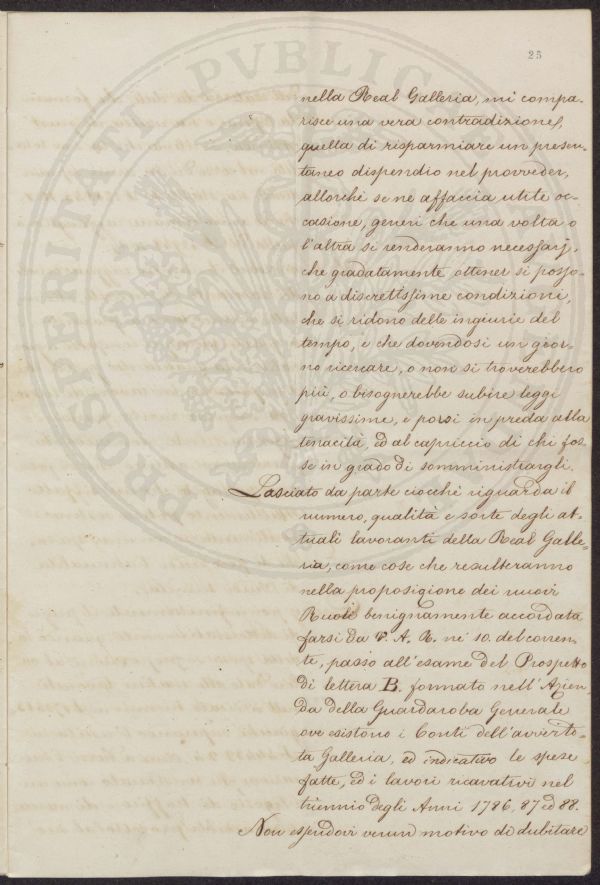 25
nella Real Galleria, mi compa-
risce una vera contradizione,
quella di risparmiare un presen-
taneo dispendio nel provveder,
allorchè se ne affaccia utile oc-
casione, generi che una volta o
l'altra si renderanno necessarj,
che gradatamente ottener si posso-
no a discretissime condizioni,
che si ridono delle ingiurie del
tempo, e che dovendosi un gior-
no ricercare, o non si troverebbero
più, o bisognerebbe subire leggi
gravissime, e porsi in preda alla
tenacità, ed al capriccio di chi fos-
se in grado di somministrargli.
Lasciato da parte ciocchè riguarda il
numero, qualità e sorte degli at-
tuali lavoranti della Real Galle-
ria, come cose che resulteranno
nella proposizione dei nuovi
Ruoli benignamente accordata
farsi da V. A. R. ne' 10. del corren-
te, passo all'esame del Prospetto
di lettera B. formato nell'Azien-
da della Guardaroba Generale
ove esistono i Conti dell'avverti-
ta Galleria, ed indicativo le spese
fatte, ed i lavori ricavativi nel
triennio degli Anni 1786, 87 ed 88.
Non essendovi verun motivo di dubitare
PROSPERITATI PVBLIC